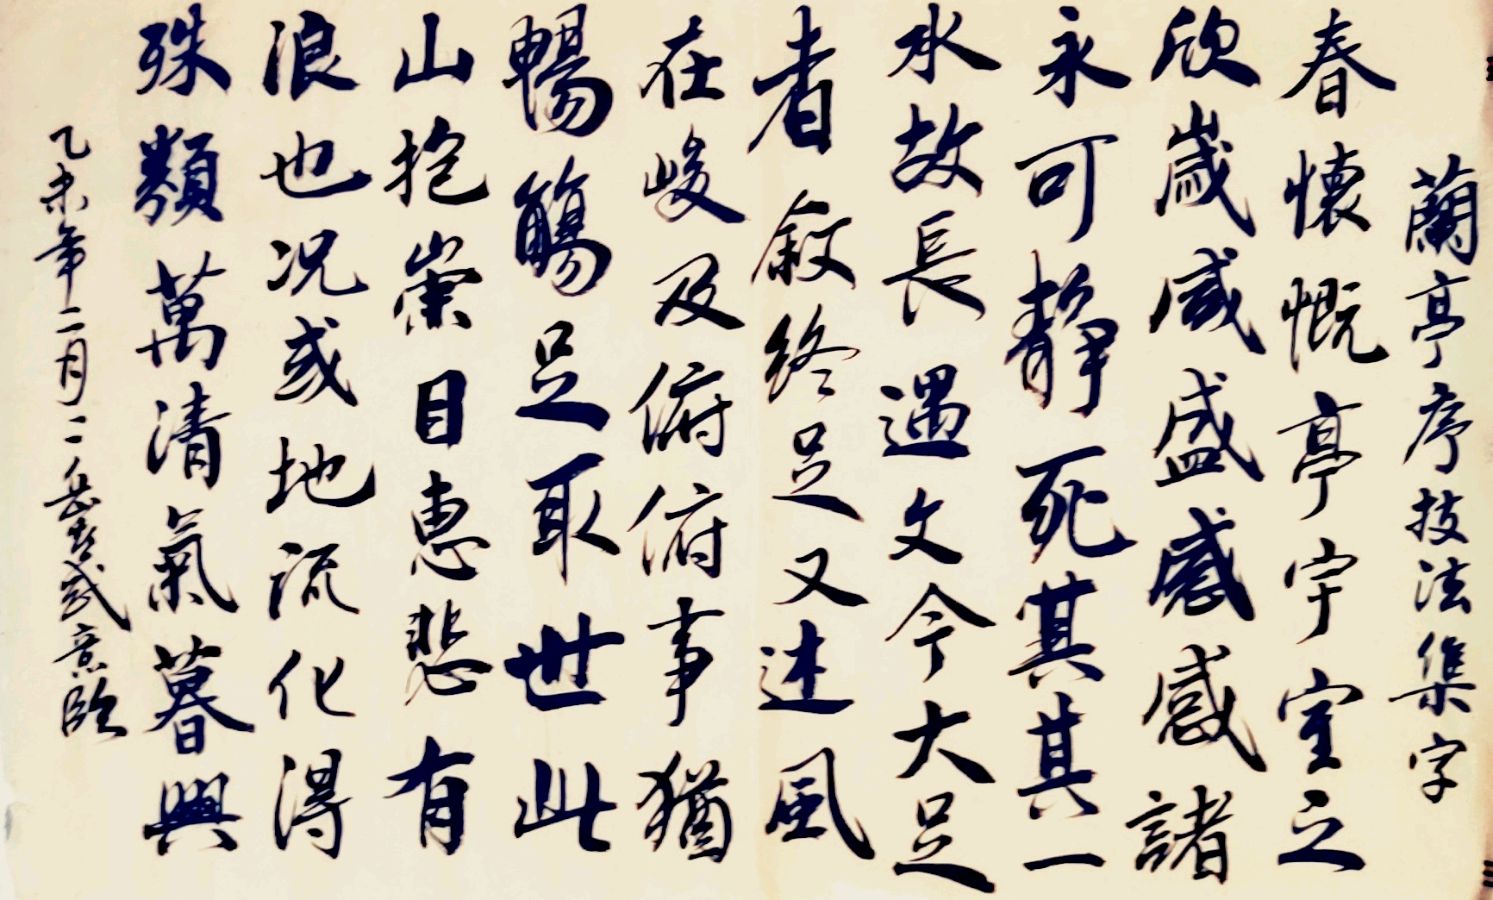 蘭亭序技法集字
春懷慨亭宇室之
欣歲咸盛感感諸
永可靜死其其一
水故長遇文今大足
者敘終足又述風
在峻及俯俯事猶
暢觴足取世此
山抱崇目惠悲有
浪也况或地流化得
殊類萬清氣暮興
乙未年二月二岳 武意臨